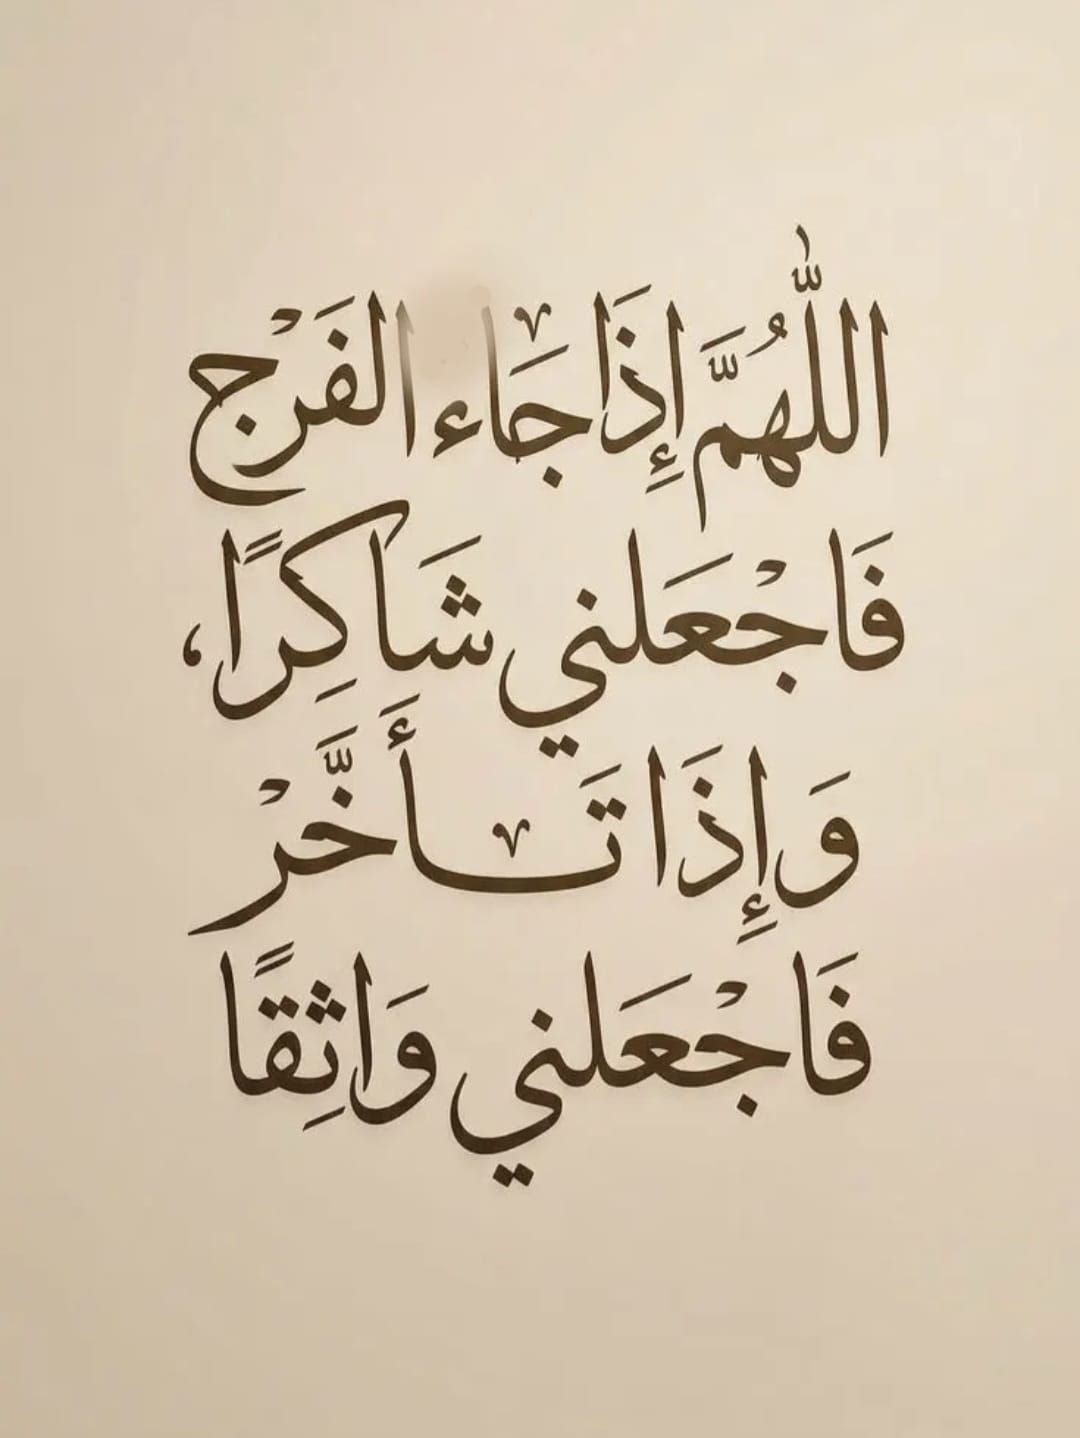 اللّٰهُمَّ إِذَا جَاء الفَرْج
فَاجْعَلني شَاكِرًا،
وَإِذَا تَأَخَّرْ
فَاجْعَلني وَاثِقًا